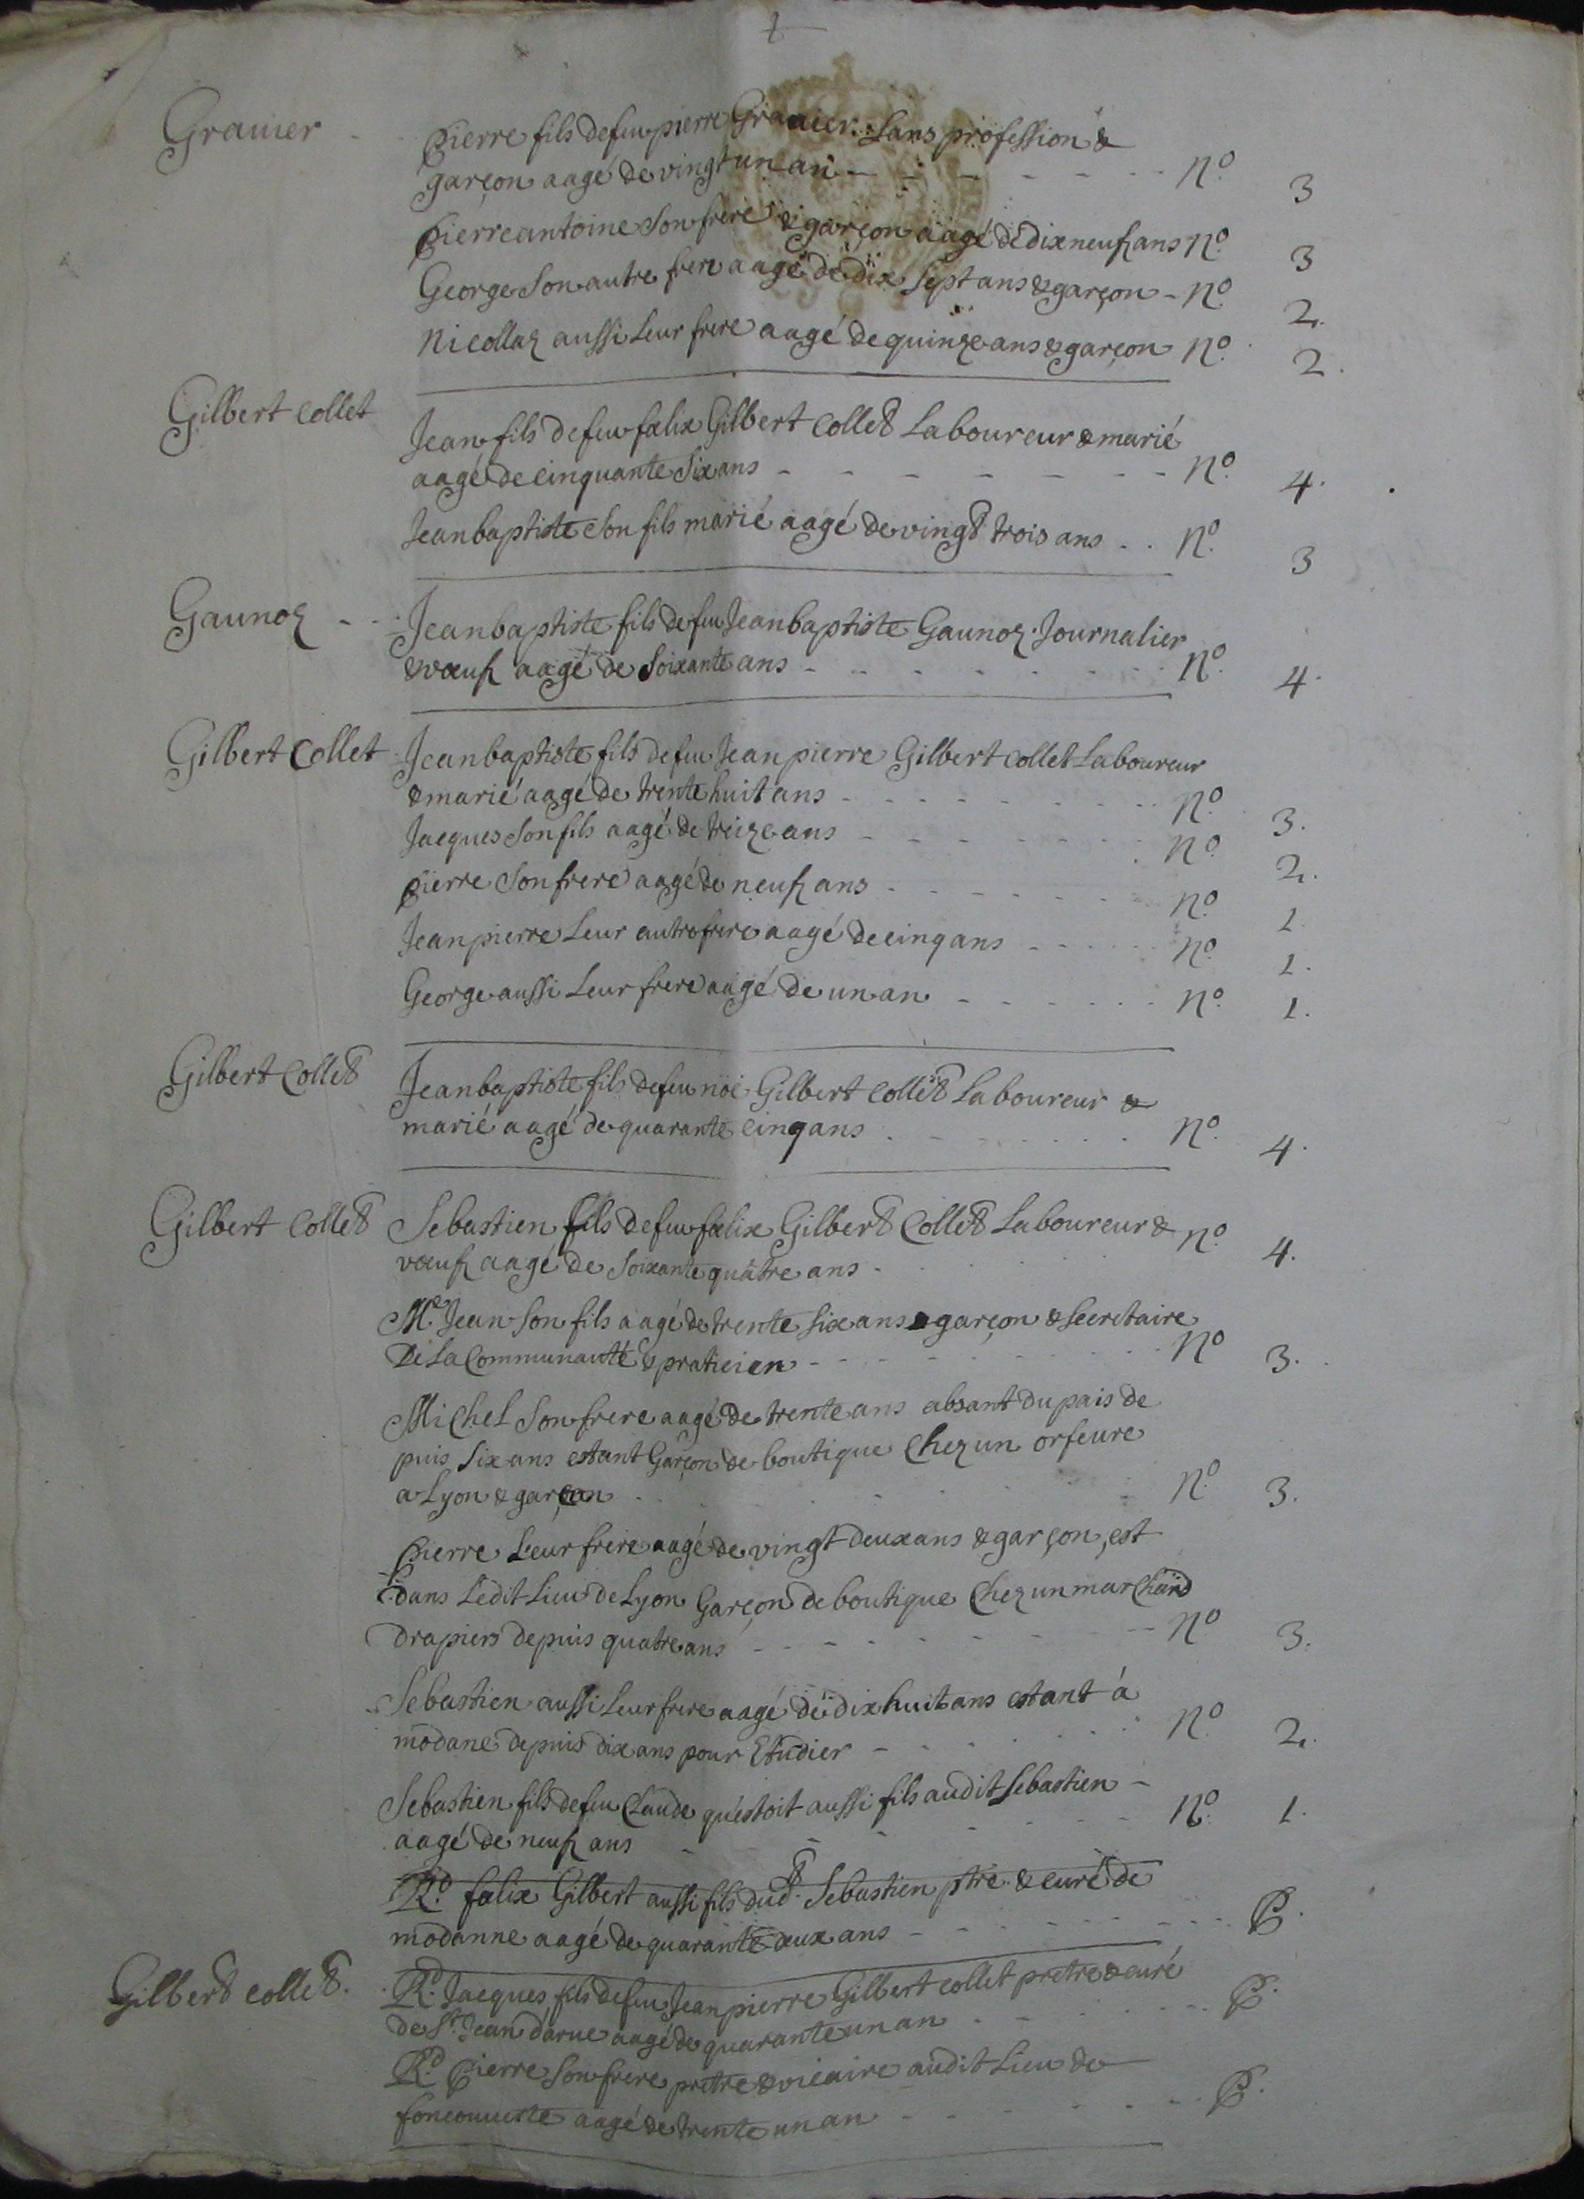 Grauier Pierre fils de feu pierre Grauier sans profession &
garçon aagé de vingt un an Nº 3
Pierre antoine son frere & garçon aagé de dix neuf ans Nº 3
George son autre frere aagé de dix sept ans & garçon Nº 2.
Nicollaz aussi leur frere aagé de quinze ans & garçon Nº 2.
Gilbert Collet Jean fils de feu fœlix Gilbert Collet Laboureur & marié
aagé de cinquante six ans Nº 4.
Jean baptiste son fils marié aagé de vingt trois ans Nº 3
Gaunoz Jean baptiste fils de feu Jean baptiste Gaunoz Journalier
& vœuf aagé de soixante ans Nº 4.
Gilbert Collet Jean baptiste fils de feu Jean pierre Gilbert Collet Laboureur
& marié aagé de trente huit ans Nº 3.
Jacques son fils aagé de treize ans Nº 2.
Pierre son frere aagé de neuf ans Nº 1.
Jean pierre Leur autre frere aagé de cinq ans Nº 1.
George aussi Leur frere aagé de un an Nº 1.
Gilbert Collet Jean baptiste fils de feu noé Gilbert Collet Laboureur &
marié aagé de quarante cinq ans Nº 4.
Gilbert Collet Sebastien fils de feu fœlix Gilbert Collet Laboureur & Nº 4.
vœuf aagé de soixante quatre ans
Me Jean son fils aagé de trente six ans & garçon & secretaire
De La Communauté & praticien Nº 3.
Michel son frere aagé de trente ans absant du pais de
puis six ans estant Garçon de boutique Chez un orfeure
a Lyon & garçon Nº 3.
Pierre Leur frere aagé de vingt deux ans & garçon, est
dans Ledit Lieu de Lyon Garçon de boutique Chez un marchand
Drapiers depuis quatre ans Nº 3.
Sebastien aussi Leur frere aagé de dix huit ans estant á
modane depuis dix ans pour Etudier Nº 2.
Sebastien fils de feu Claude qu'estoit aussi fils audit Sebastien
aagé de neuf ans Nº 1.
Rd fœlix Gilbert aussi fils dud. Sebastien ptre & curé de
modanne aagé de quarante deux ans P.
Gilbert Collet. Rd Jacques fils de feu Jean pierre Gilbert Collet pretre & curé
de St Jean d'arue aagé de quarante un an P.
Rd Pierre son frere pretre & vicaire audit Lieu de
foncouuerte aagé de trente un an P.